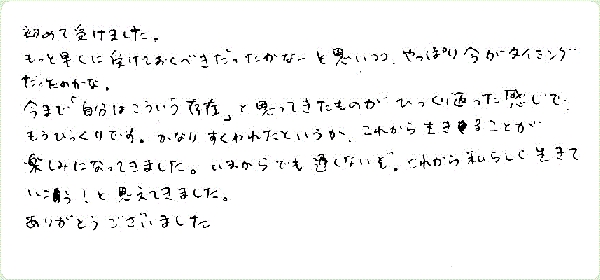 初めて受けました。
もっと早くに受けておくべきだったかなーと思いつつ、やっぱり今がタイミング
だったのかな。
今まで「自分はこういう存在」と思ってきたものがひっくり返った感じで、
もうびっくりです。かなりすくわれたというか、これから生きることが
楽しみになってきました。いまからでも遅くないぞ。これから私らしく生きて
いこう!と思えてきました。
ありがとうございました